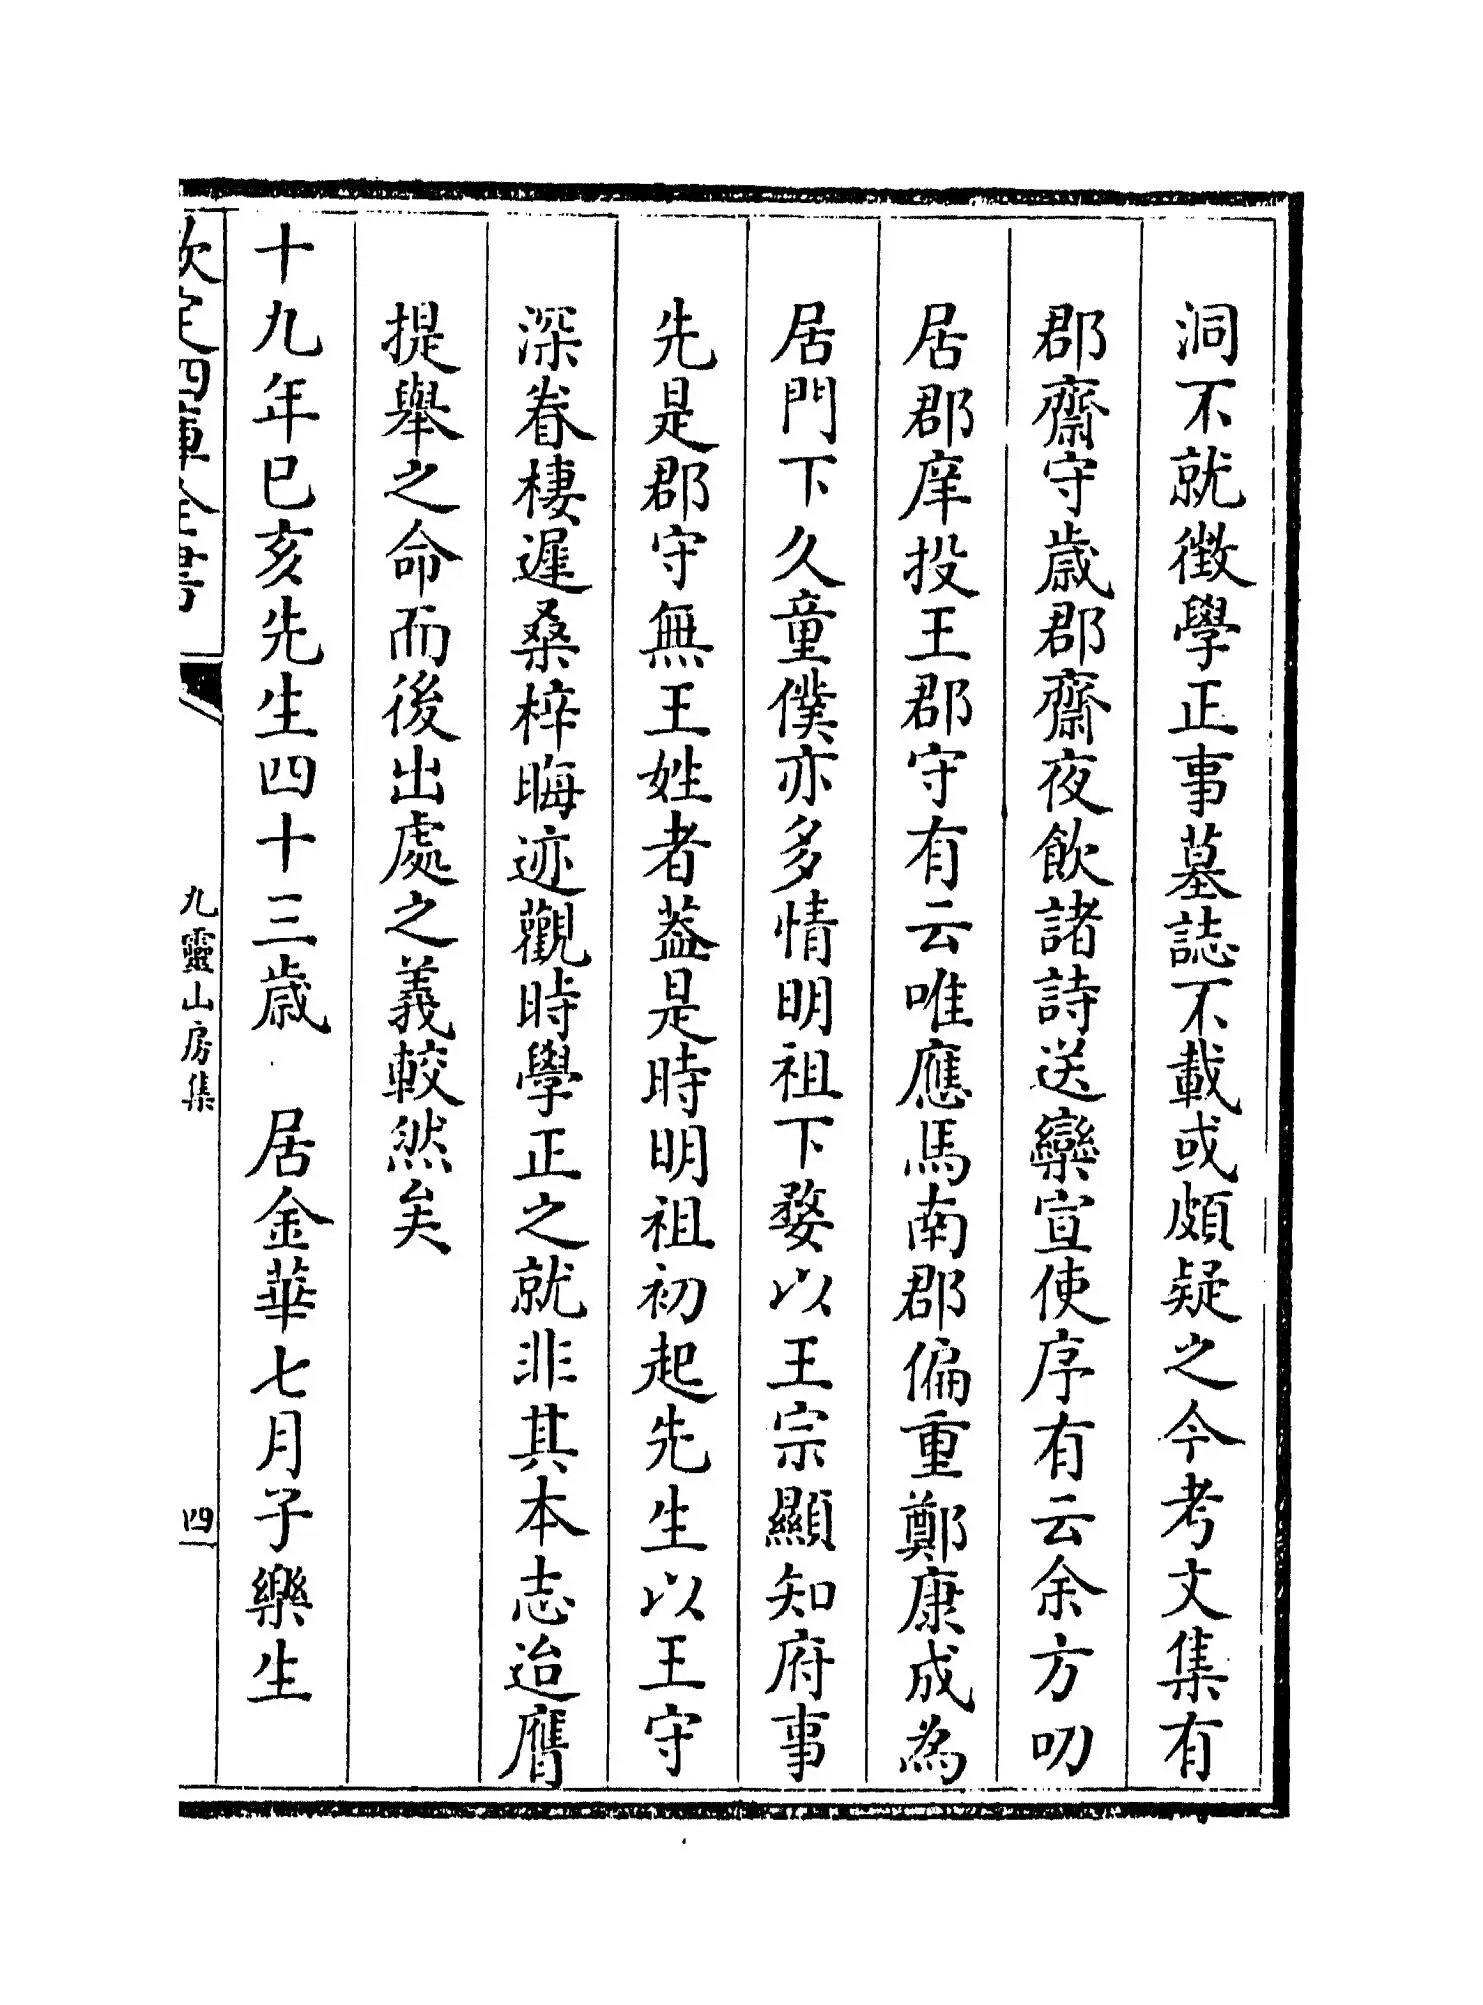 洞不就徴學正事墓誌不載或頗疑之今考文集有
郡齋守歳郡齋夜飲諸詩送欒宣使序有云余方叨
居郡庠投王郡守有云唯應馬南郡偏重鄭康成為
居門下久童僕亦多情明祖下婺以王宗顯知府事
先是郡守無王姓者葢是時明祖初起先生以王守
深眷棲遲桑梓晦迹觀時學正之就非其本志迨膺
提舉之命而後出處之義較然矣
十九年已亥先生四十三歳　居金華七月子樂生
欽定四庫全書
九靈山房集
四